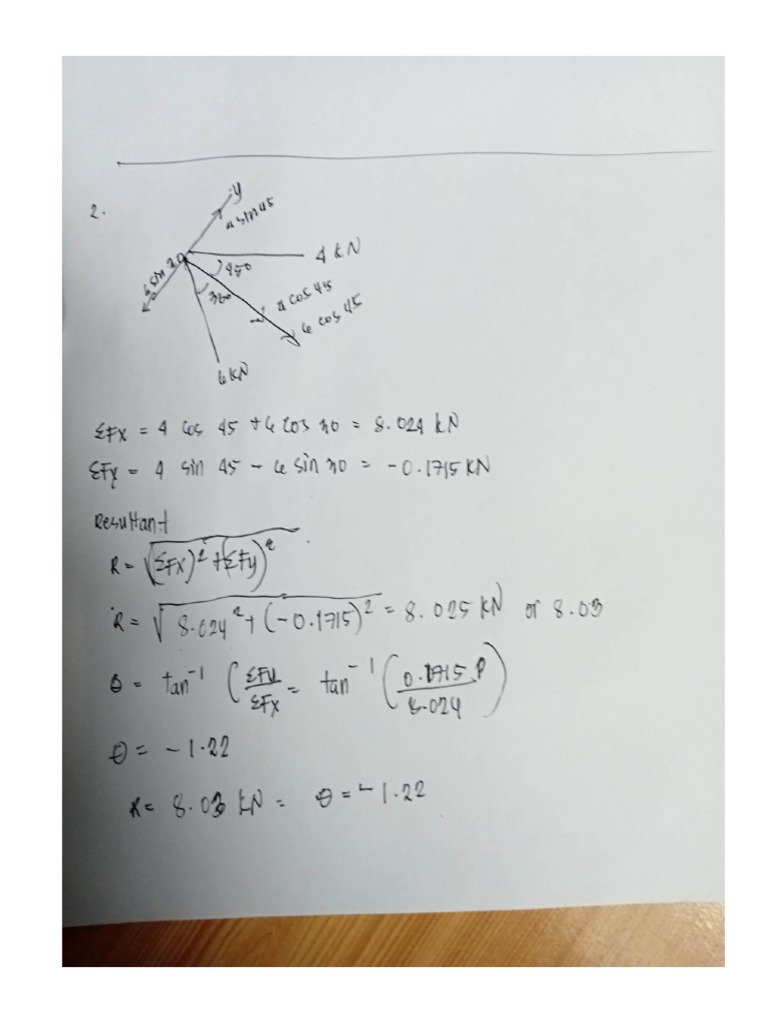 2.
y
4 sin 45
4 kN
6 sin 30
45°
30°
4 cos 45
6 cos 45
6 kN
ΣFx = 4 cos 45 + 6 cos 30 = 8.024 kN
ΣFy = 4 sin 45 - 6 sin 30 = -0.1715 KN
Resultant
R = √(ΣFx)² + (ΣFy)²
R = √8.024² + (-0.1715)² = 8.025 kN or 8.03
θ = tan⁻¹ (ΣFy/ΣFx = tan⁻¹ (0.1715/8.024)
θ = -1.22
R = 8.03 kN = θ = -1.22